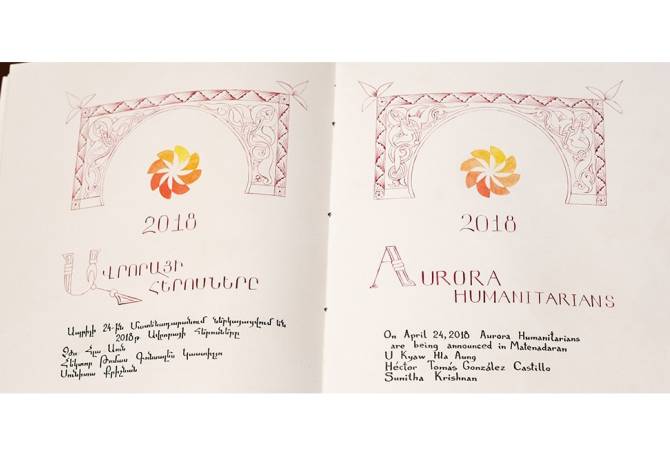 2018
ԱՎՐՈՐԱՅԻ
ՀԵՐՈՍՆԵՐԸ
Ապրիլի 24-ին Մատենադարանում ներկայացվում են
2018թ Ավրորայի Հերոսները
Չժո Հլա Աուն
Հեկտոր Թոմաս Գոնսալես Կաստիլո
Սունիտա Քրիշնան
2018
AURORA
HUMANITARIANS
On April 24, 2018 Aurora Humanitarians
are being announced in Matenadaran
U Kyaw Hla Aung
Héctor Tomás González Castillo
Sunitha Krishnan